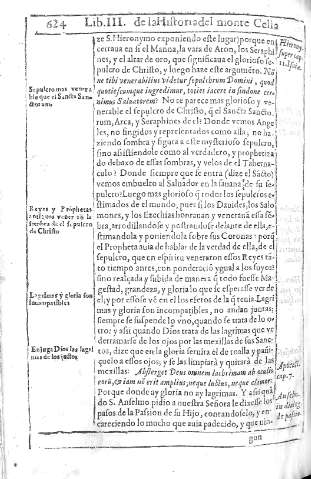 624 Lib. III. de la Historia del monte Celia
ze S. Hieronymo exponiendo este lugar) porque en
cerraua en si el Manna, la vara de Aron, los Seraphi
nes, y el altar de oro, que significaua el glorioso se-
pulcro de Christo, y luego haze este argumēto. No
ne tibi venerabilius videtur sepulcrum Domini, quod
quotiescumque ingredimur, toties iacere in sindone cer
nimus Saluatorem? No te parece mas glorioso y ve-
nerable el sepulcro de Christo, q̄ el Sancta Sancto
rum, Arca, y Seraphines de el? Donde vemos Ange
les, no fingidos y representados como alla, no ha
ziendo sombra y figura a este mysterioso sepulcro,
sino assistiendole como al verdadero, y prophetiza
do debaxo de essas sombras, y velos de el Taberna-
culo? Donde siempre que se entra (dize el Sacto)
vemos embuelto al Saluador en la sauana de su se-
pulcro: Luego mas glorioso q̄ todos los sepulcros e-
stimados de el mundo, pues si los Dauides, los Salo
mones, y los Ezechias honrauan y venerauā essa sō-
bra, arrodillandose y postrandose delante de ella, e-
stimandola y poniendola sobre sus Coronas: por q̄
el Propheta auia de hablar de la verdad de ella, de el
sepulcro, que en espiritu veneraron essos Reyes tā-
to tiempo antes, con ponderació ygual a los suyos?
sino realçada y subida de manera q̄ todo fuesse Ma
gestad, grandeza, y gloria lo que se esperasse ver de
el; y por esso se vē en el los efetos de la q̄ tenia. Lagri
mas y gloria son incompatibles, no andan juntas;
siempre se suspende lo vno, quando se trata de lo o-
tro; y assi quando Dios trata de las lagrimas que ve
derramarse de los ojos por las mexillas de sus Sanc-
tos, dize que en la gloria seruira el de toalla y pañi-
çuelo a essos ojos, y se las limpiarà y quitarà de las
mexillas: Absterget Deus omnem lachrimam ab oculis
eorū, et iam nō erit amplius, neque luctus, neque clamor.
Porque donde ay gloria no ay lagrimas. Y assi quā
do S. Anselmo pidio a nuestra Señora le dixesse los
pasos de la Passion de su Hijo, contandoselo, y en-
careciendo lo mucho que auia padecido, y que nin-
gun
Sepulcro mas venera
ble que el Sancta San-
ctorum
Reyes y Prophetas
antiguos vener en la
sombra de el sepulcro
de Christo
Lagrimas y gloria son
incompatibles
Enjuga Dios las lagri
mas de los justos
Hierony.
Apocal.
cap. 7.
Anselm.